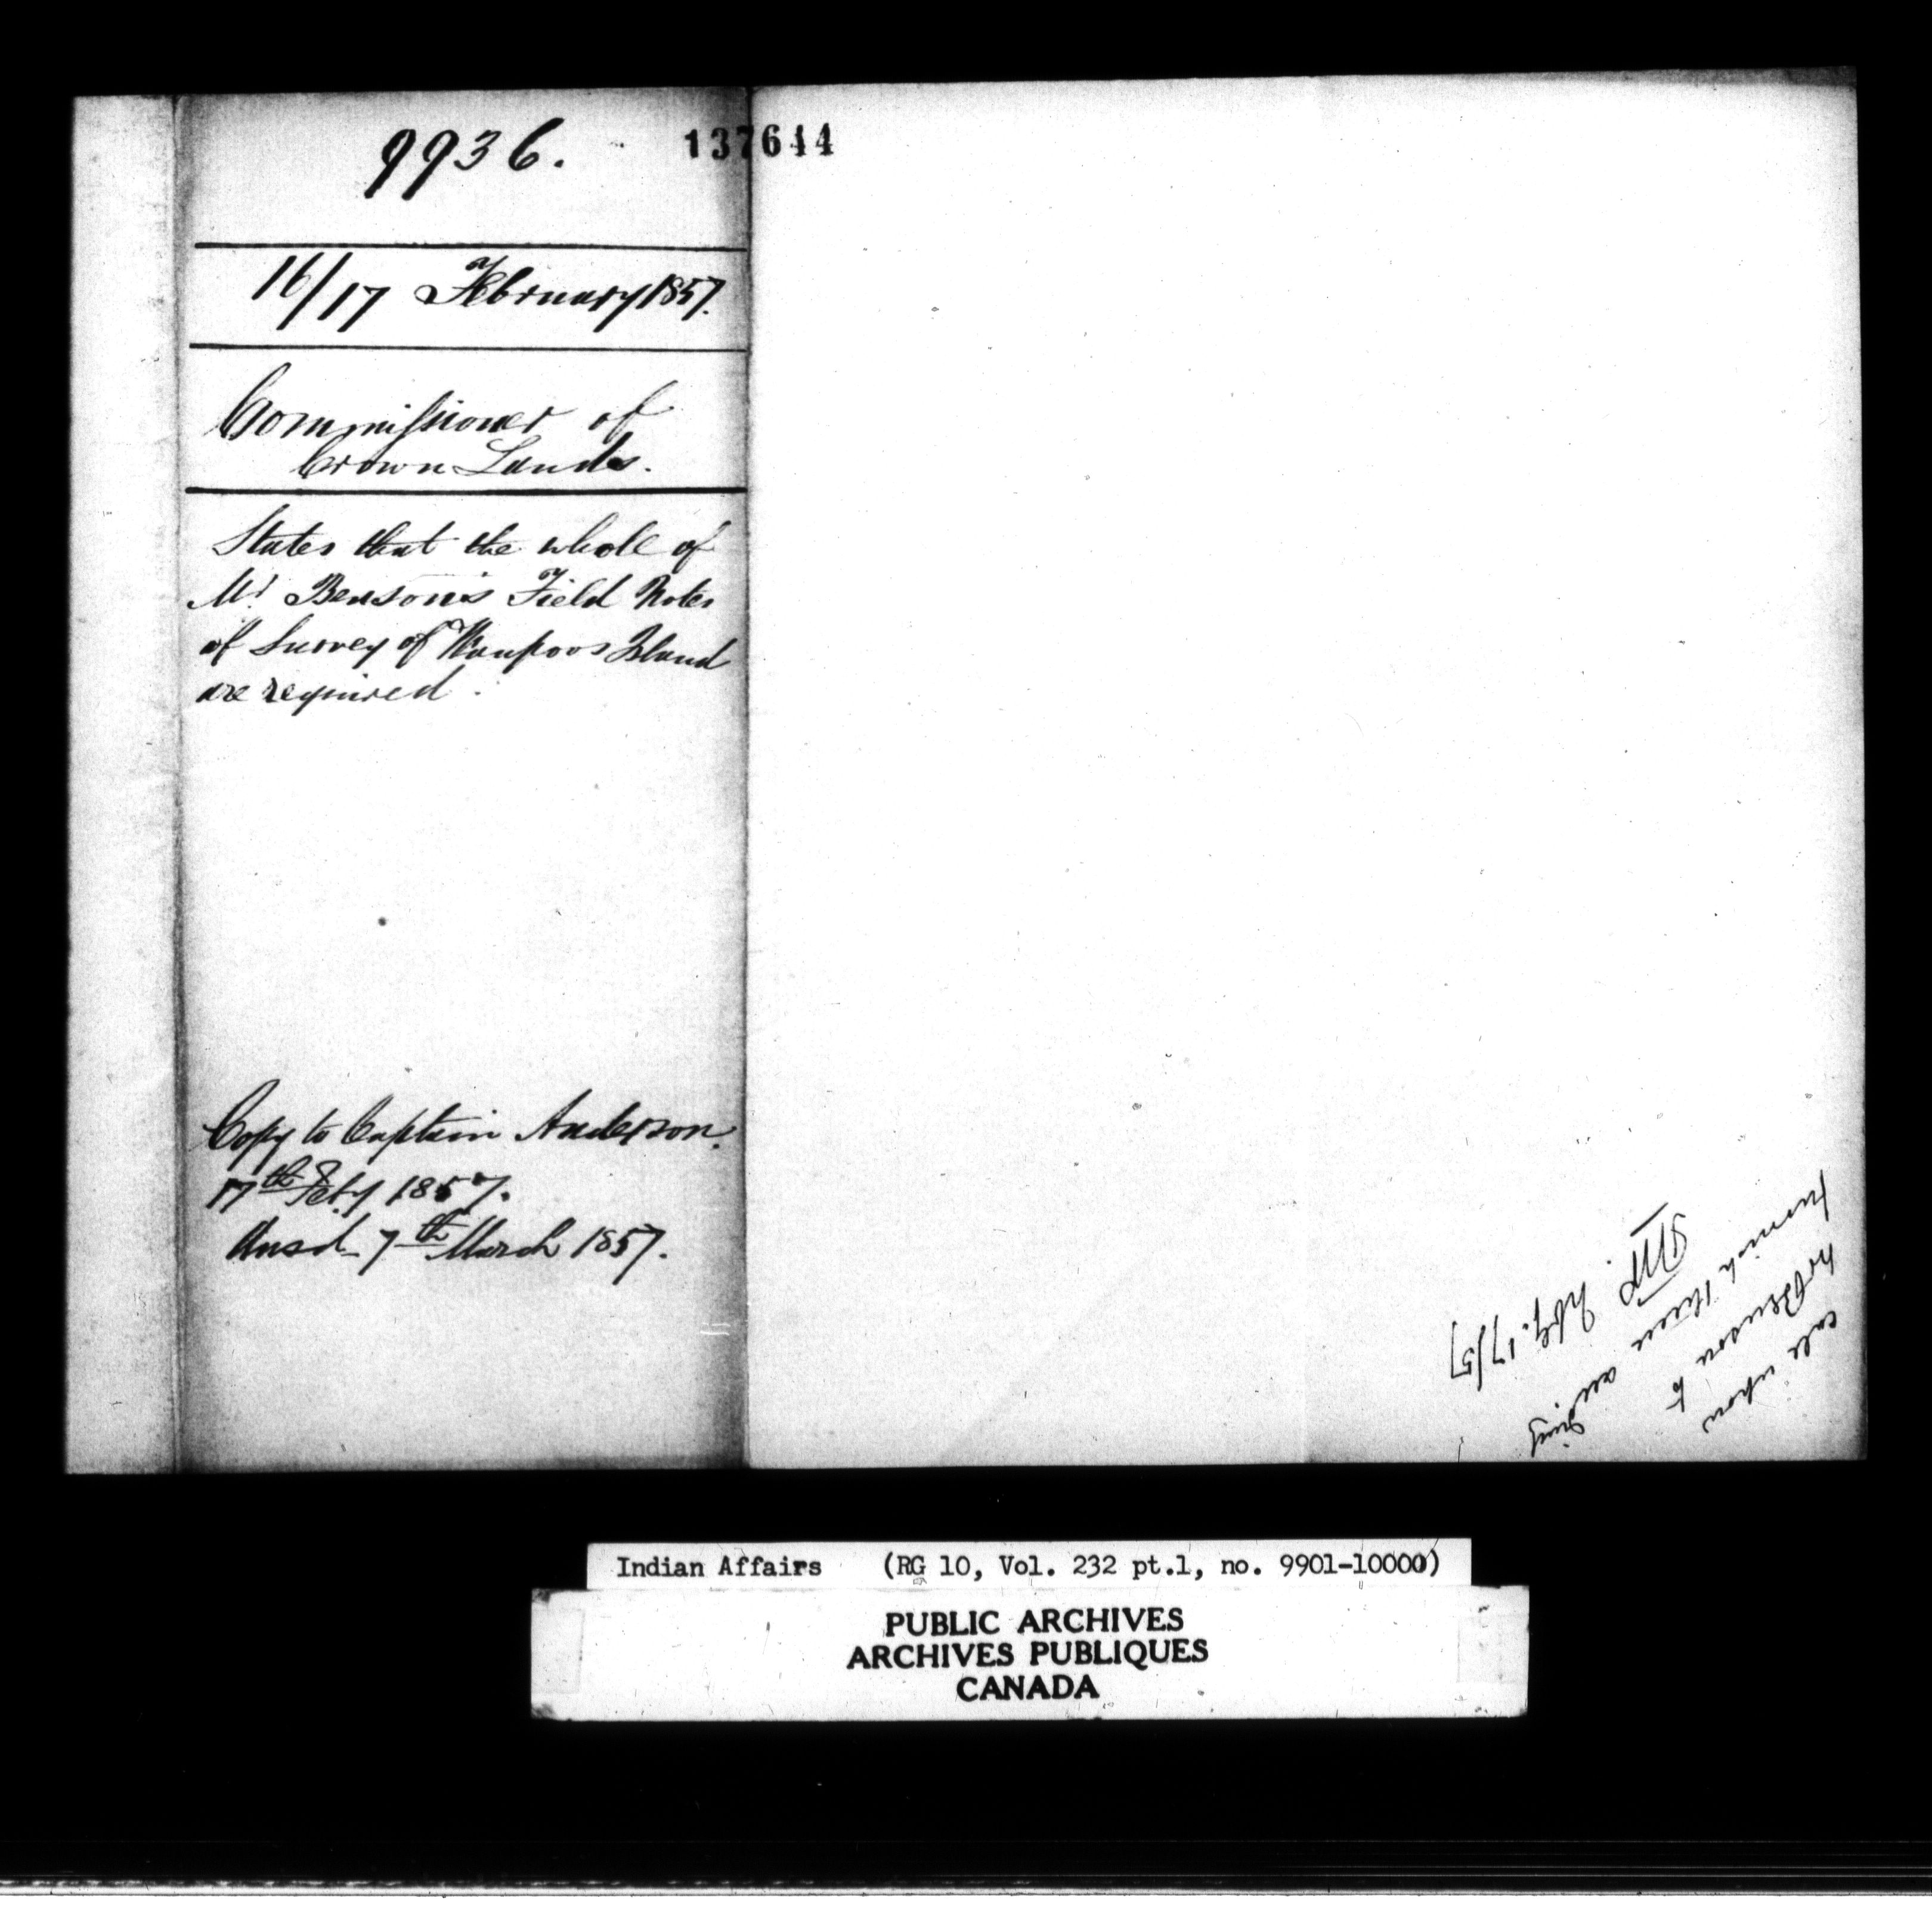 9936.
137644
16/17 February 1857.
Commissioner of
Crown Lands.
States that the whole of
Mr Benson's Field Notes
of Survey of Waupoos Island
are required.
Copy to Captain Anderson.
17th Feby 1857.
Ansd 7th March 1857.
call upon
Mr Benson to
furnish these
Feby. 17/57
Indian Affairs (RG 10, Vol. 232 pt.1, no. 9901-10000)
PUBLIC ARCHIVES
ARCHIVES PUBLIQUES
CANADA